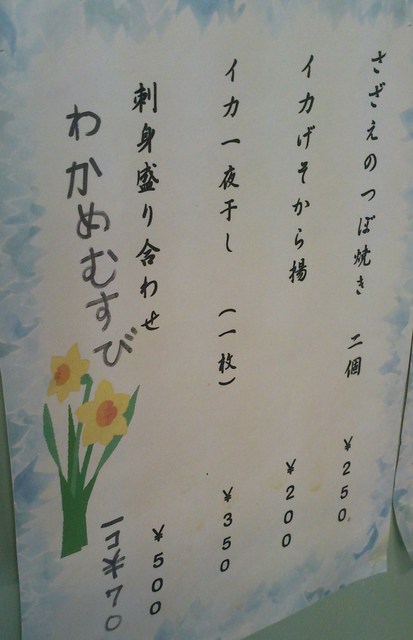 さざえのつぼ焼き 二個 ¥250
イカげそから揚 ¥200
イカ一夜干し (一枚) ¥350
刺身盛り合わせ ¥500
わかめむすび 一コ¥70